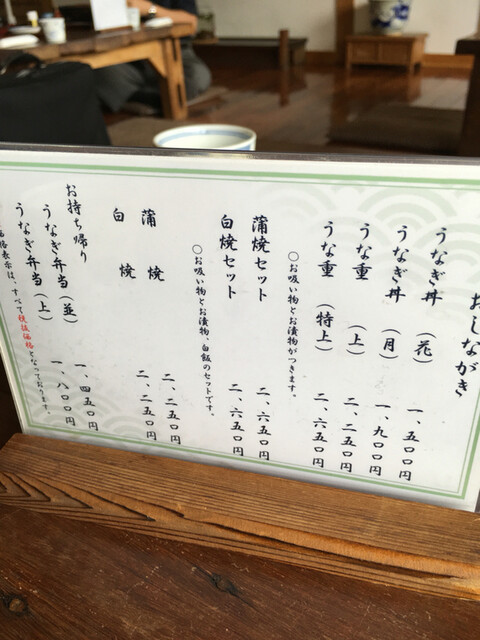 おしながき
うなぎ丼 (花) 一、五〇〇円
うなぎ丼 (月) 一、九〇〇円
うな重 (上) 二、二五〇円
うな重 (特上) 二、六五〇円
〇お吸い物とお漬物がつきます。
蒲焼セット 二、六五〇円
白焼セット 二、六五〇円
〇お吸い物とお漬物、白飯のセットです。
蒲焼 二、二五〇円
白焼 二、二五〇円
お持ち帰り
うなぎ弁当 (並) 一、四五〇円
うなぎ弁当 (上) 一、八〇〇円
価格表示は、すべて税抜価格となっております。